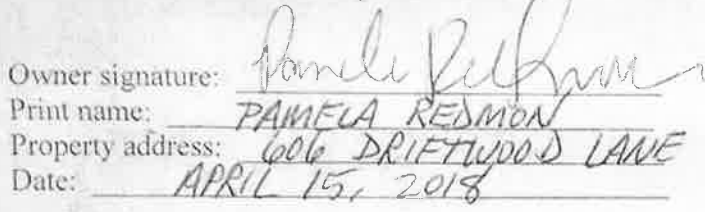 Owner signature: Pamela Redmon
Print name: PAMELA REDMON
Property address: 606 DRIFTWOOD LANE
Date: APRIL 15, 2018